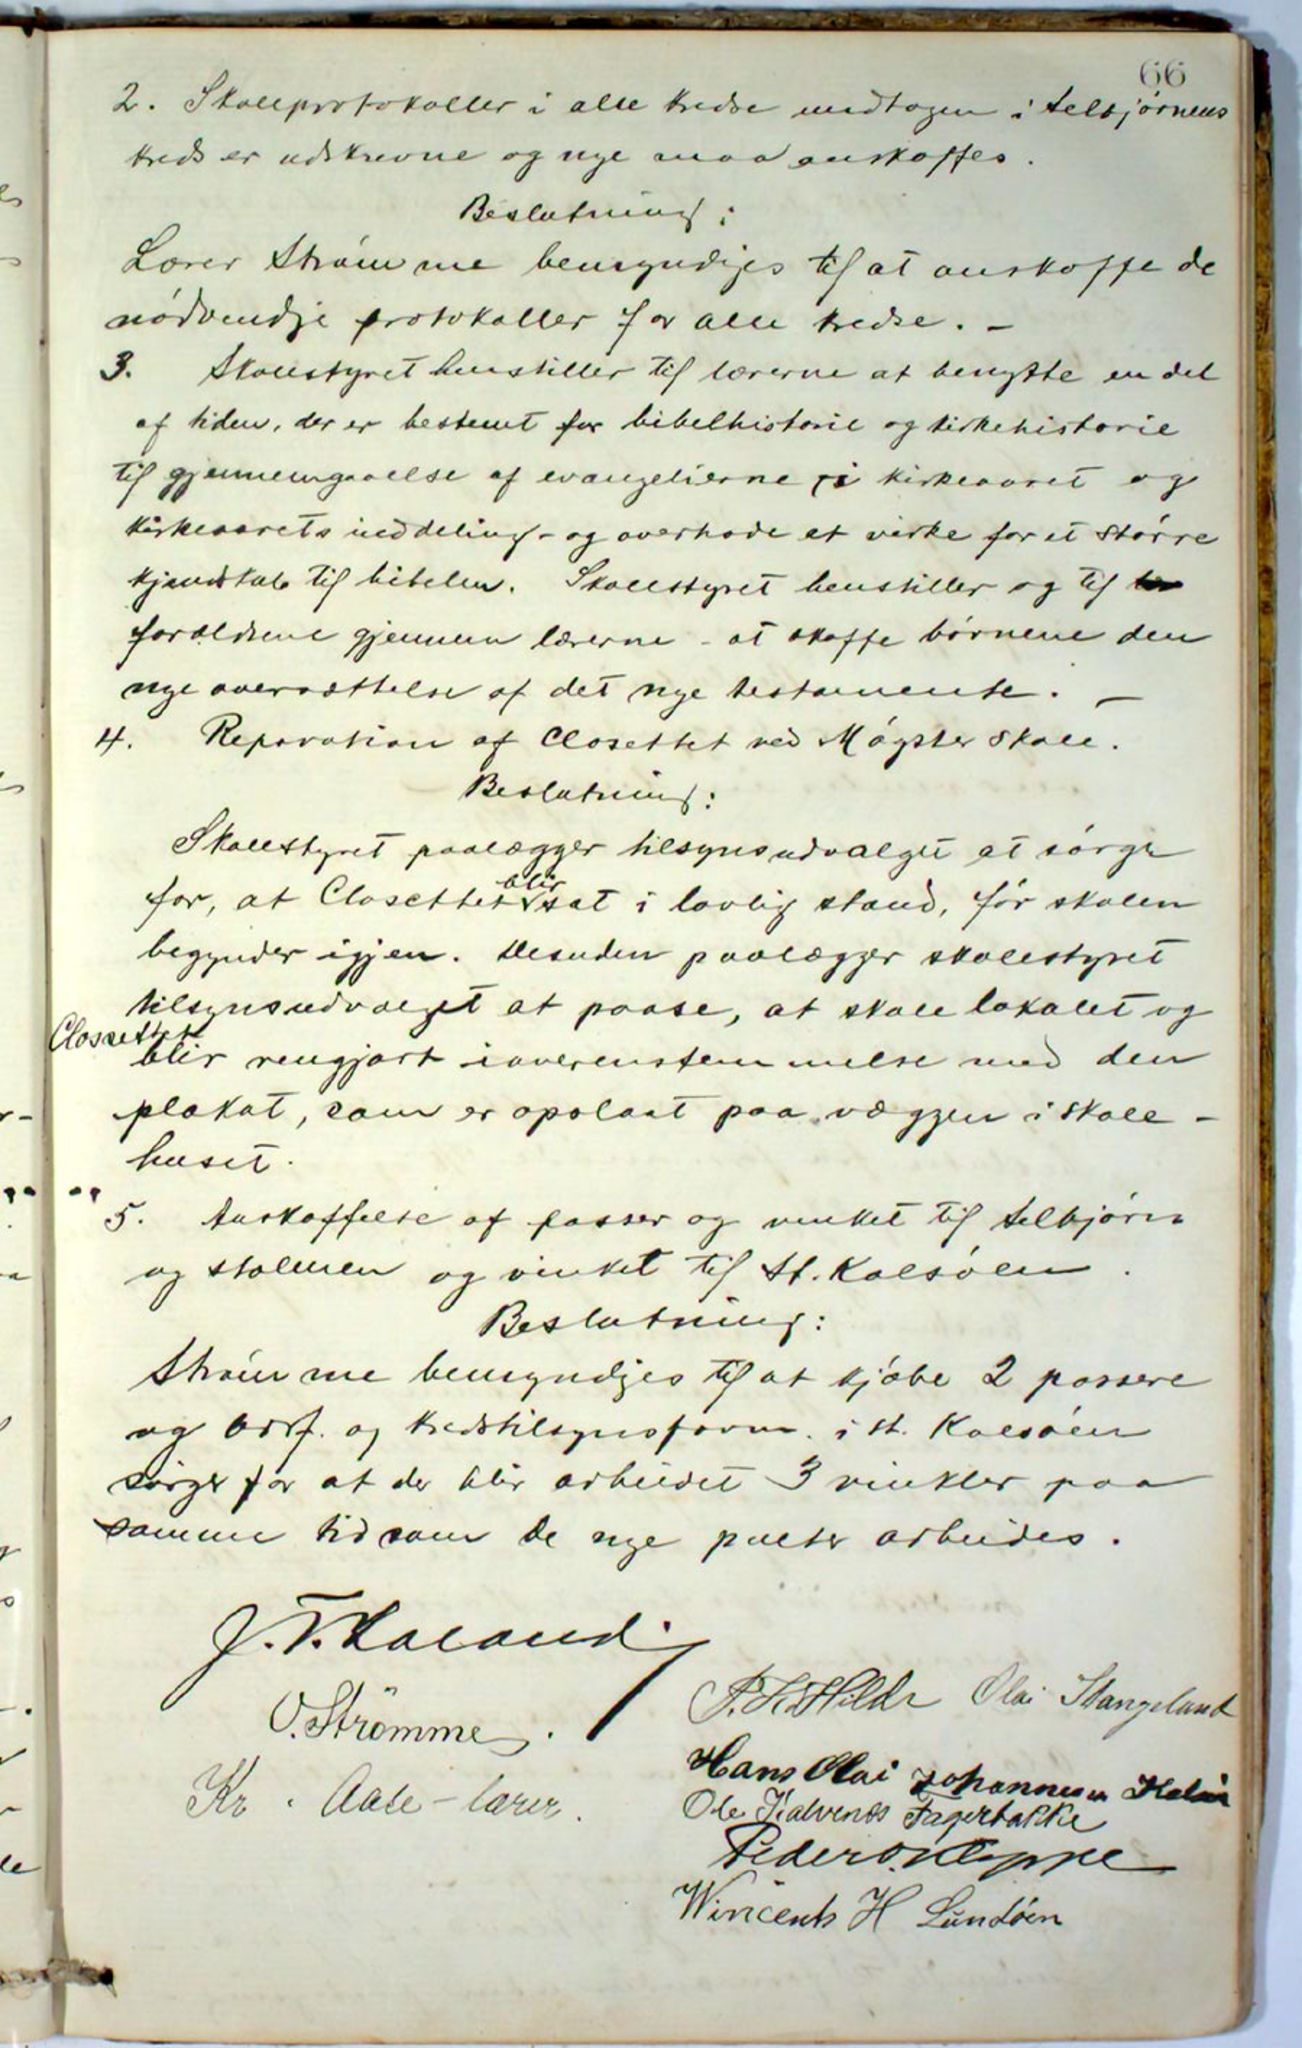 66
2. Skoleprotokoller i alle kredse undtagen i Selbjørnens
kreds er udskrevne og nye maa anskaffes.
Beslutning:
Lærer Strømme bemyndiges til at anskaffe de
nødvendige protokoller for alle kredse. –
3. Skolestyret henstiller til lærerne at benytte en del
af tiden, der er bestemt for bibelhistorie og kirkehistorie
til gjennemgaaelse af evangelierne i kirkeaaret og
kirkeaarets inddeling – og overhode at virke for et større
kjendskab til bibelen. Skolestyret henstiller og til
forældrene gjennem lærerne – at skaffe børnene den
nye oversættelse af det nye testamente. –
4. Reparation af Closettet ved Møgster skole.
Beslutning:
Skolestyret paalægger tilsynsudvalget at sørge
for, at Closettet blir sat i lovlig stand, før skolen
begynder igjen. Desuden paalægger skolestyret
tilsynsudvalget at paase, at skolelokalet og
Clossettet blir rengjort i overenstemmelse med den
plakat, som er opslaat paa væggen i skole-
huset.
5. Anskaffelse af passer og vinkel til Selbjørn
og Stolmen og vinkel til St. Kalsøen.
Beslutning:
Strømme bemyndiges til at kjøbe 2 passere
og ordf. og kredstilsynsform. i St. Kalsøen
sørger for at der blir arbeidet 3 vinkler paa
samme tid som de nye pulter arbeides.
J. T. Kaland
O. Strömme.
Kr. Aase – lærer.
P. K. Hilde Olai Stangeland
Hans Olai Johannesen
Ole Kalvenes Fagerbakke
Peder O. Kleppe
Wincents H Lundøen